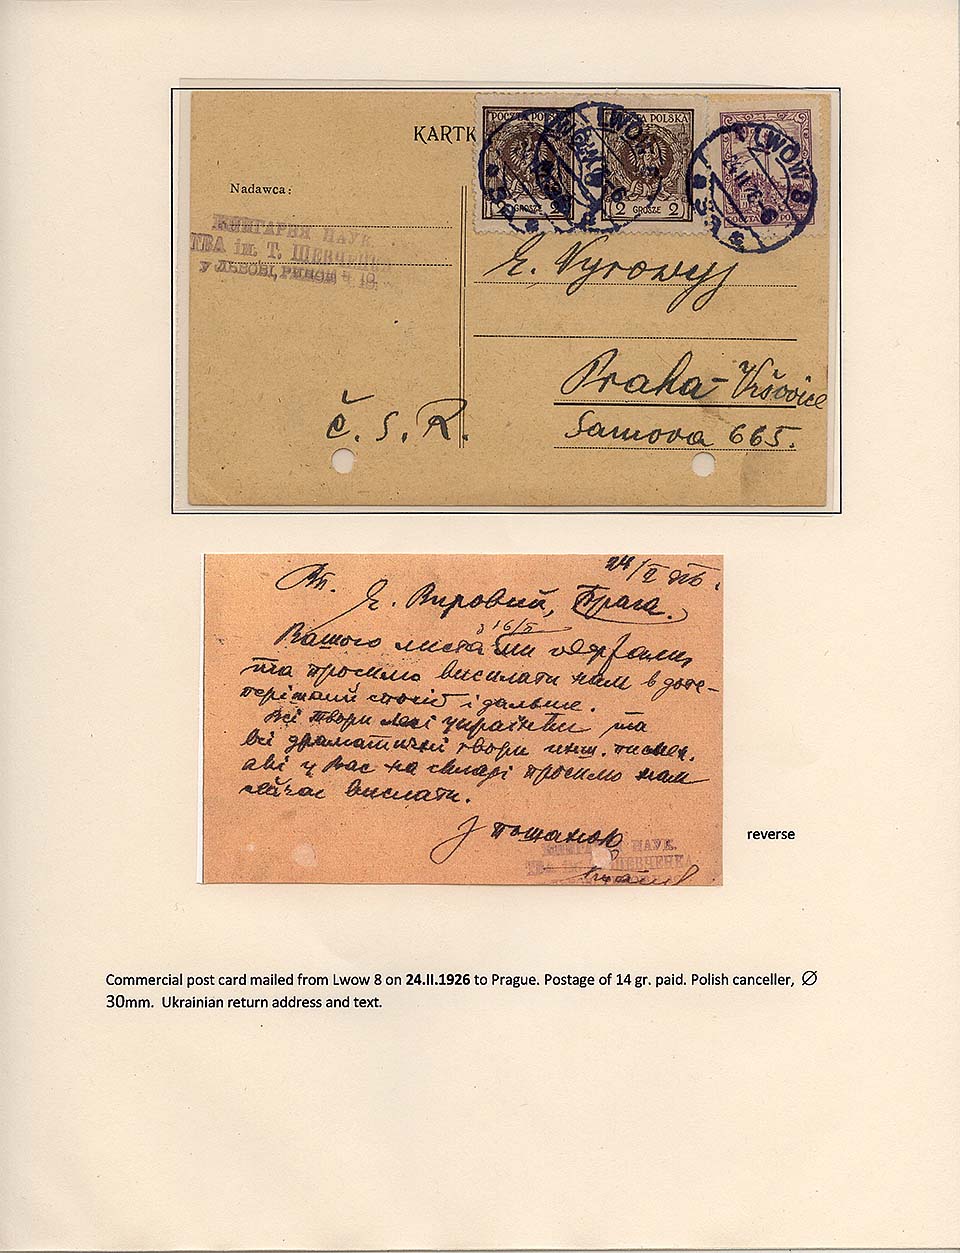 KARTK
POCZTA POLSKA
2 GROSZE 2
LWÓW 8
Nadawca:
КНИГАРНЯ НАУК.
ТВА ім. Т. ШЕВЧЕНКА
У ЛЬВОВІ, РИНОК Ч. 10.
E. Vyrowyj
Praha - Vršovice
Č. S. R.
Samova 665.
24/II 926.
Вп.
Є. Вировий, Прага.
з 16/II
Вашого листа ми одержали,
та просимо висилати нам в доте-
перішний спосіб і дальше.
Всі твори Лесі Українки та
всі драматичні твори инш. письмен.
які у Вас на складі просимо нам
зараз вислати.
З пошаною
НАУК.
ШЕВЧЕНКА
reverse
Commercial post card mailed from Lwow 8 on 24.II.1926 to Prague. Postage of 14 gr. paid. Polish canceller, ∅
30mm. Ukrainian return address and text.